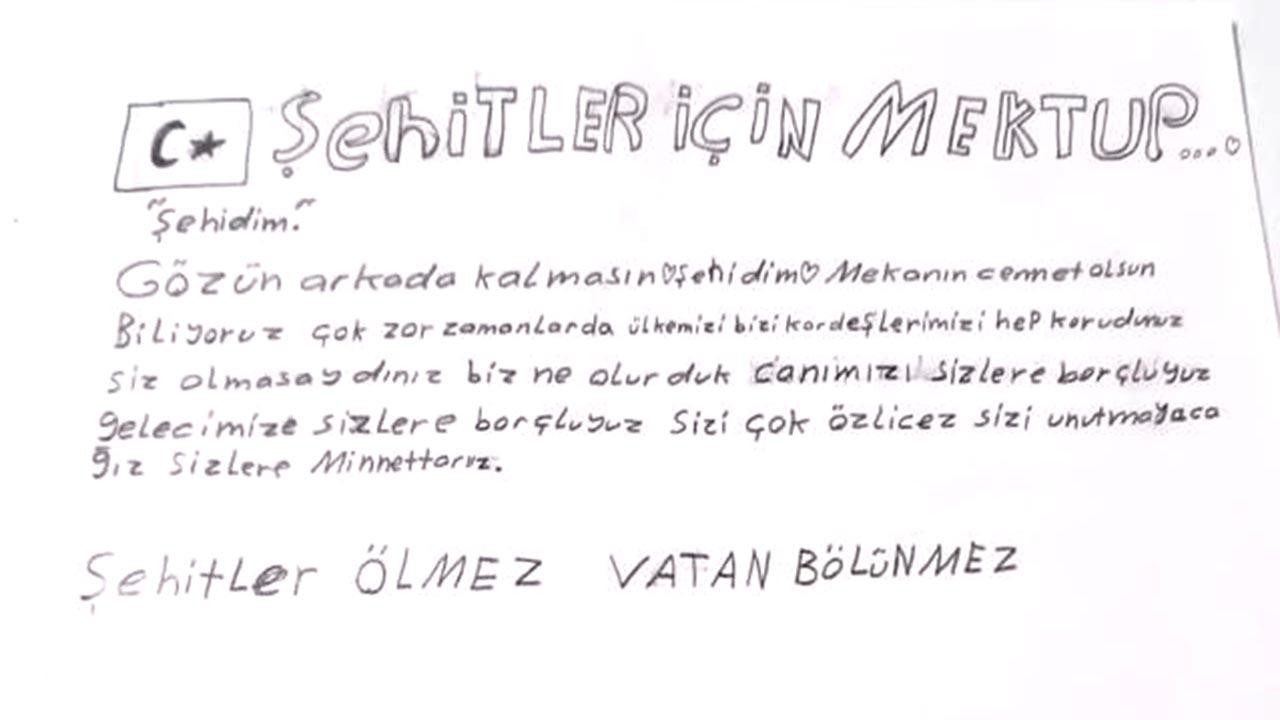 ŞehiTLER İÇİN MEKTUP...♡
"Şehidim."
Gözün arkada kalmasın♡şehidim♡ Mekanın cennet olsun
Biliyoruz çok zor zamanlarda ülkemizi bizi kardeşlerimizi hep korudunuz
siz olmasaydınız biz ne olurduk canımızı sizlere borçluyuz
gelecimize sizlere borçluyuz sizi çok özlicez sizi unutmayaca
ğız sizlere Minnettarız.
Şehitler ÖLMEZ VATAN BÖLÜNMEZ